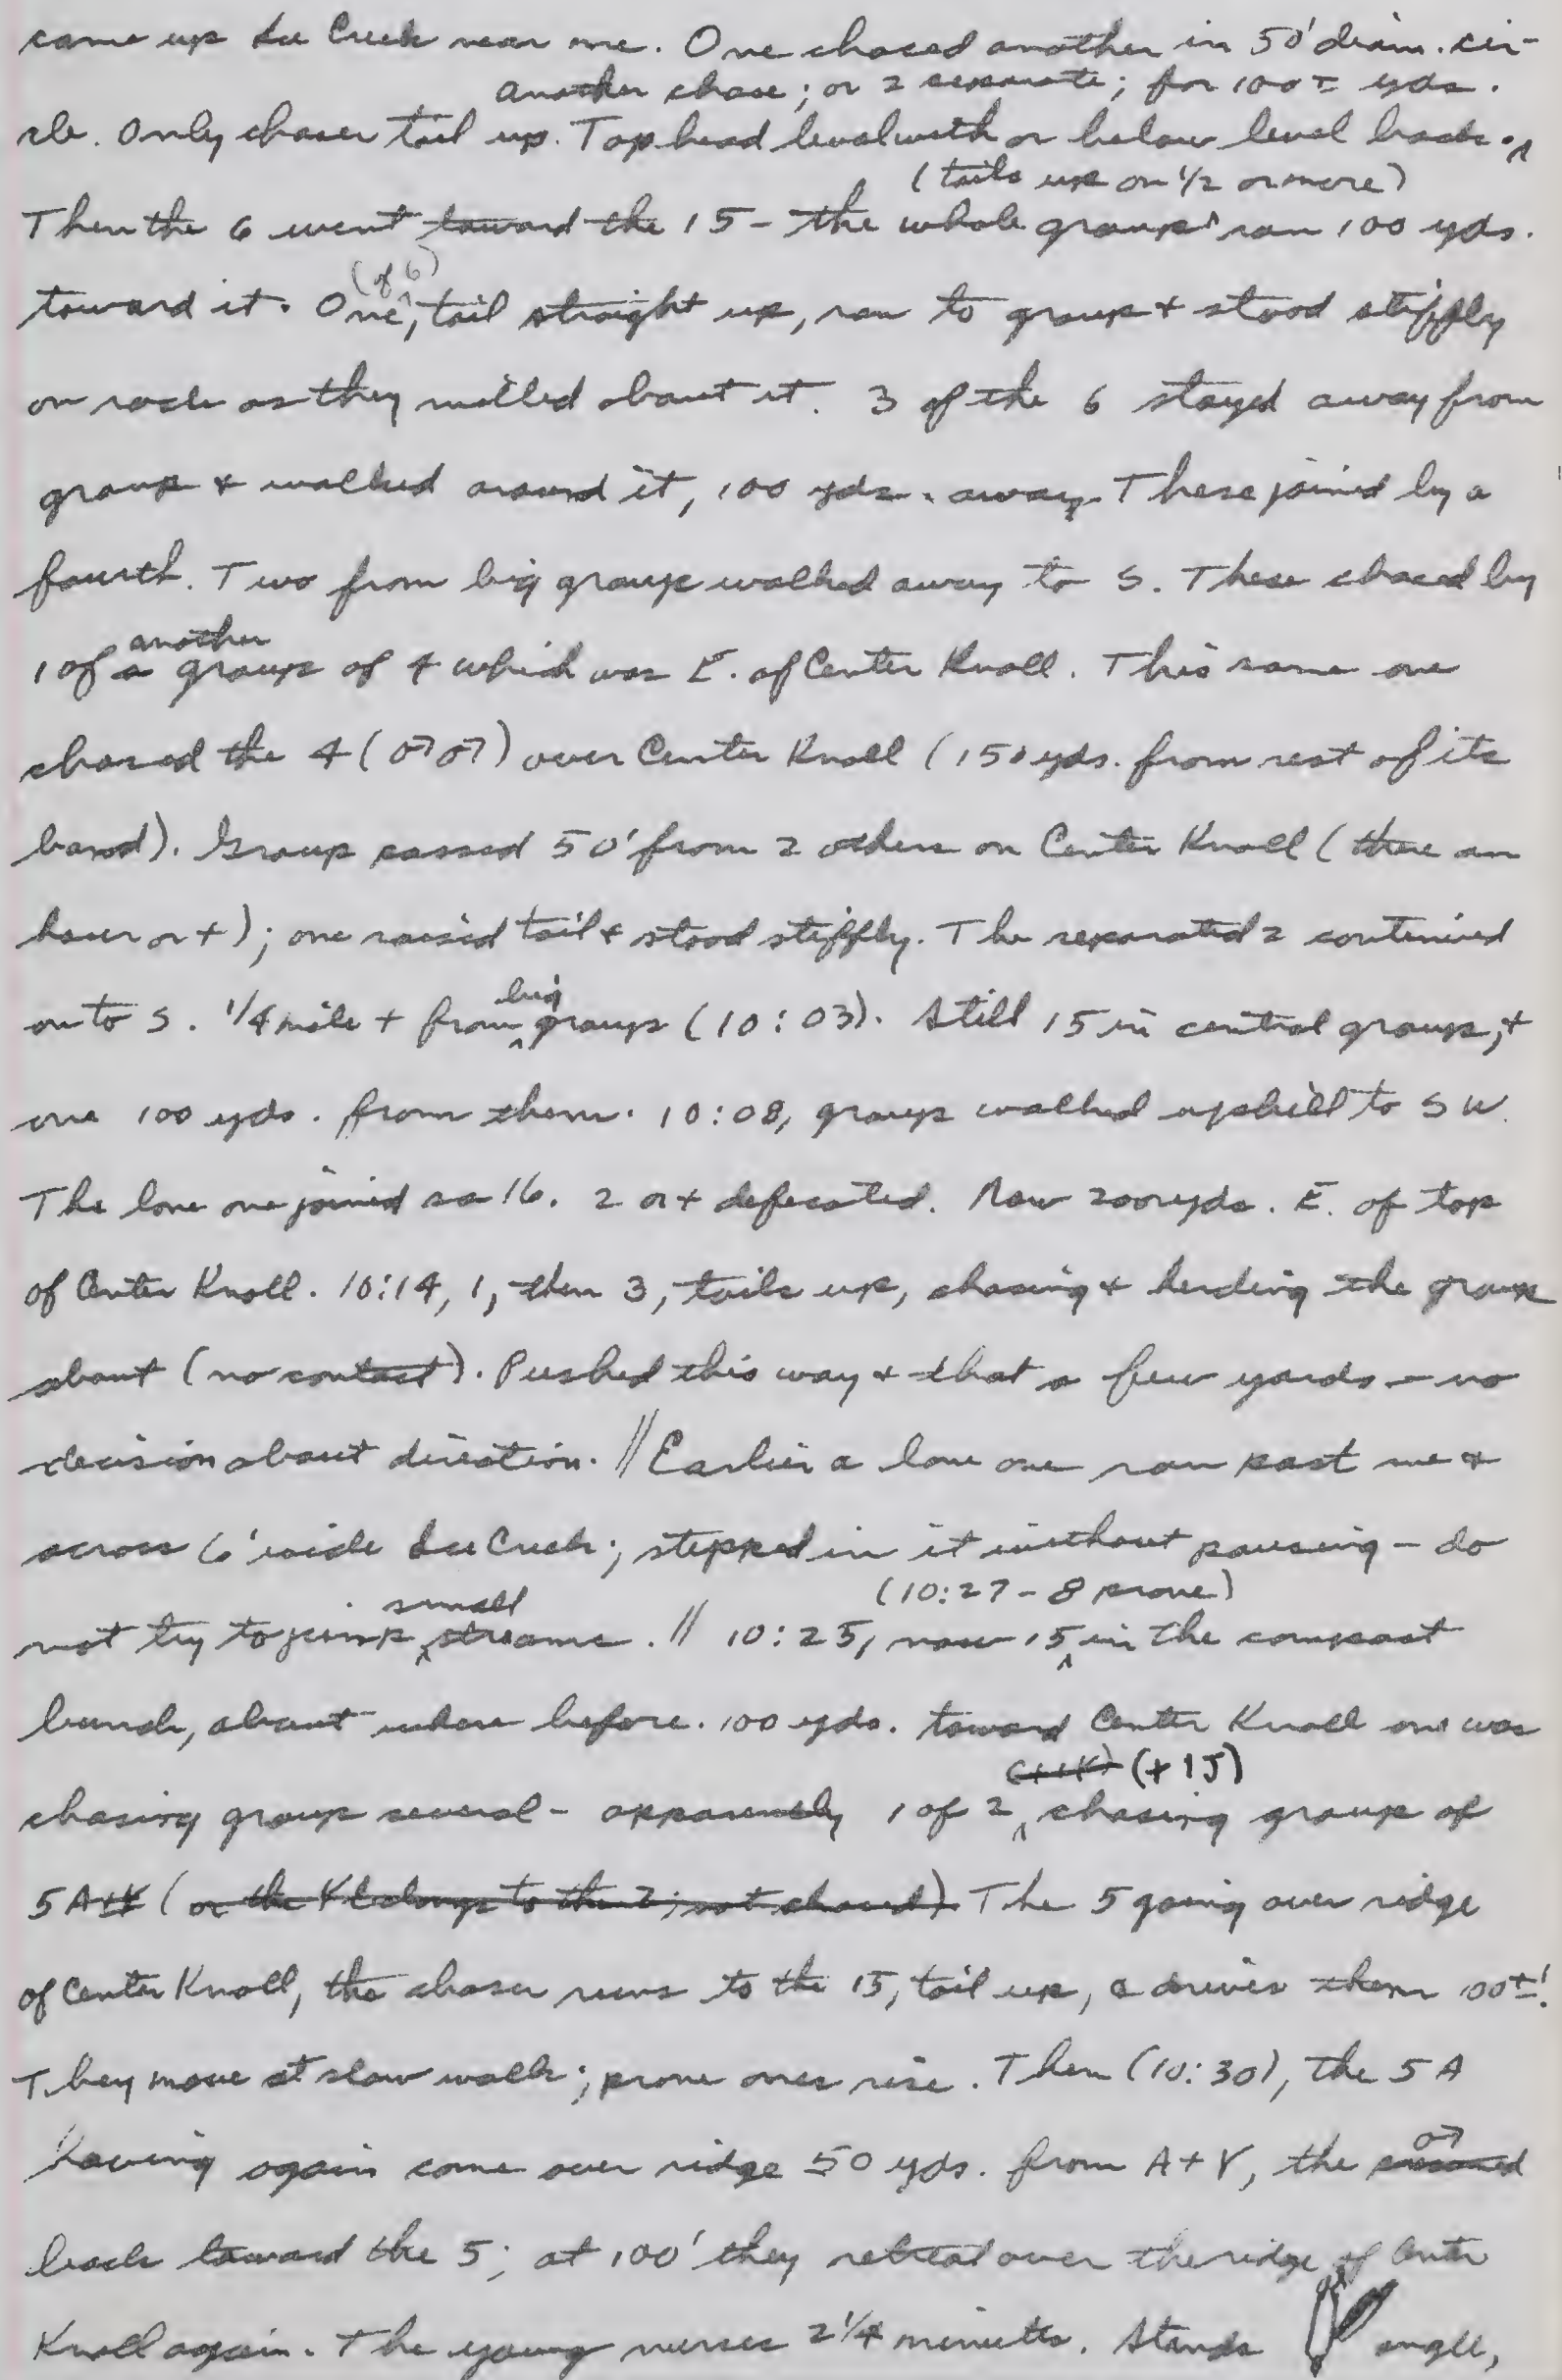 came up Lee Creek near me. One chased another in 50' diam. cir-
another chase; or 2 separate; for 100± yds.
cle. Only chaser tail up. Top head level with or below level back.
(tails up on 1/2 or more)
Then the 6 went toward the 15 - the whole group ran 100 yds.
(of 6)
toward it. One, tail straight up, ran to group + stood stiffly
on rock as they milled about it. 3 of the 6 stayed away from
group + walked around it, 100 yds. away. These joined by a
fourth. Two from big group walked away to S. These chased by
another
1 of a group of 4 which was E. of Center Knoll. This same one
chased the 4 (♂♂) over Center Knoll (150 yds. from rest of its
band). Group passed 50' from 2 others on Center Knoll (there an
hour or +); one raised tail + stood stiffly. The separated 2 continued
big
on to S. 1/4 mile + from group (10:03). Still 15 in central group, +
one 100 yds. from them. 10:08, group walked uphill to SW.
The lone one joined so 16. 2 or + defecated. Now 200 yds. E. of top
of Center Knoll. 10:14, 1, then 3, tails up, chasing + herding the group
about (no contact). Pushed this way + that a few yards - no
decision about direction. // Earlier a lone one ran past me +
across 6' wide Lee Creek; stepped in it without pausing - do
small (10:27-8 prone)
not try to jump streams. // 10:25, now 15 in the compact
bunch, about where before. 100 yds. toward Center Knoll one was
(++K) (+1J)
chasing group several - apparently 1 of 2 chasing group of
5 A+Y (or the Y belongs to the 2; not chased) The 5 going over ridge
of Center Knoll, the chaser runs to the 15, tail up, & drives them 100±'.
They move at slow walk; prone ones rise. Then (10:30), the 5 A
♂
having again come over ridge 50 yds. from A+Y, the
back toward the 5; at 100' they retreat over the ridge of Center
Knoll again. The young nurses 2 1/4 minutes. Stands angle,